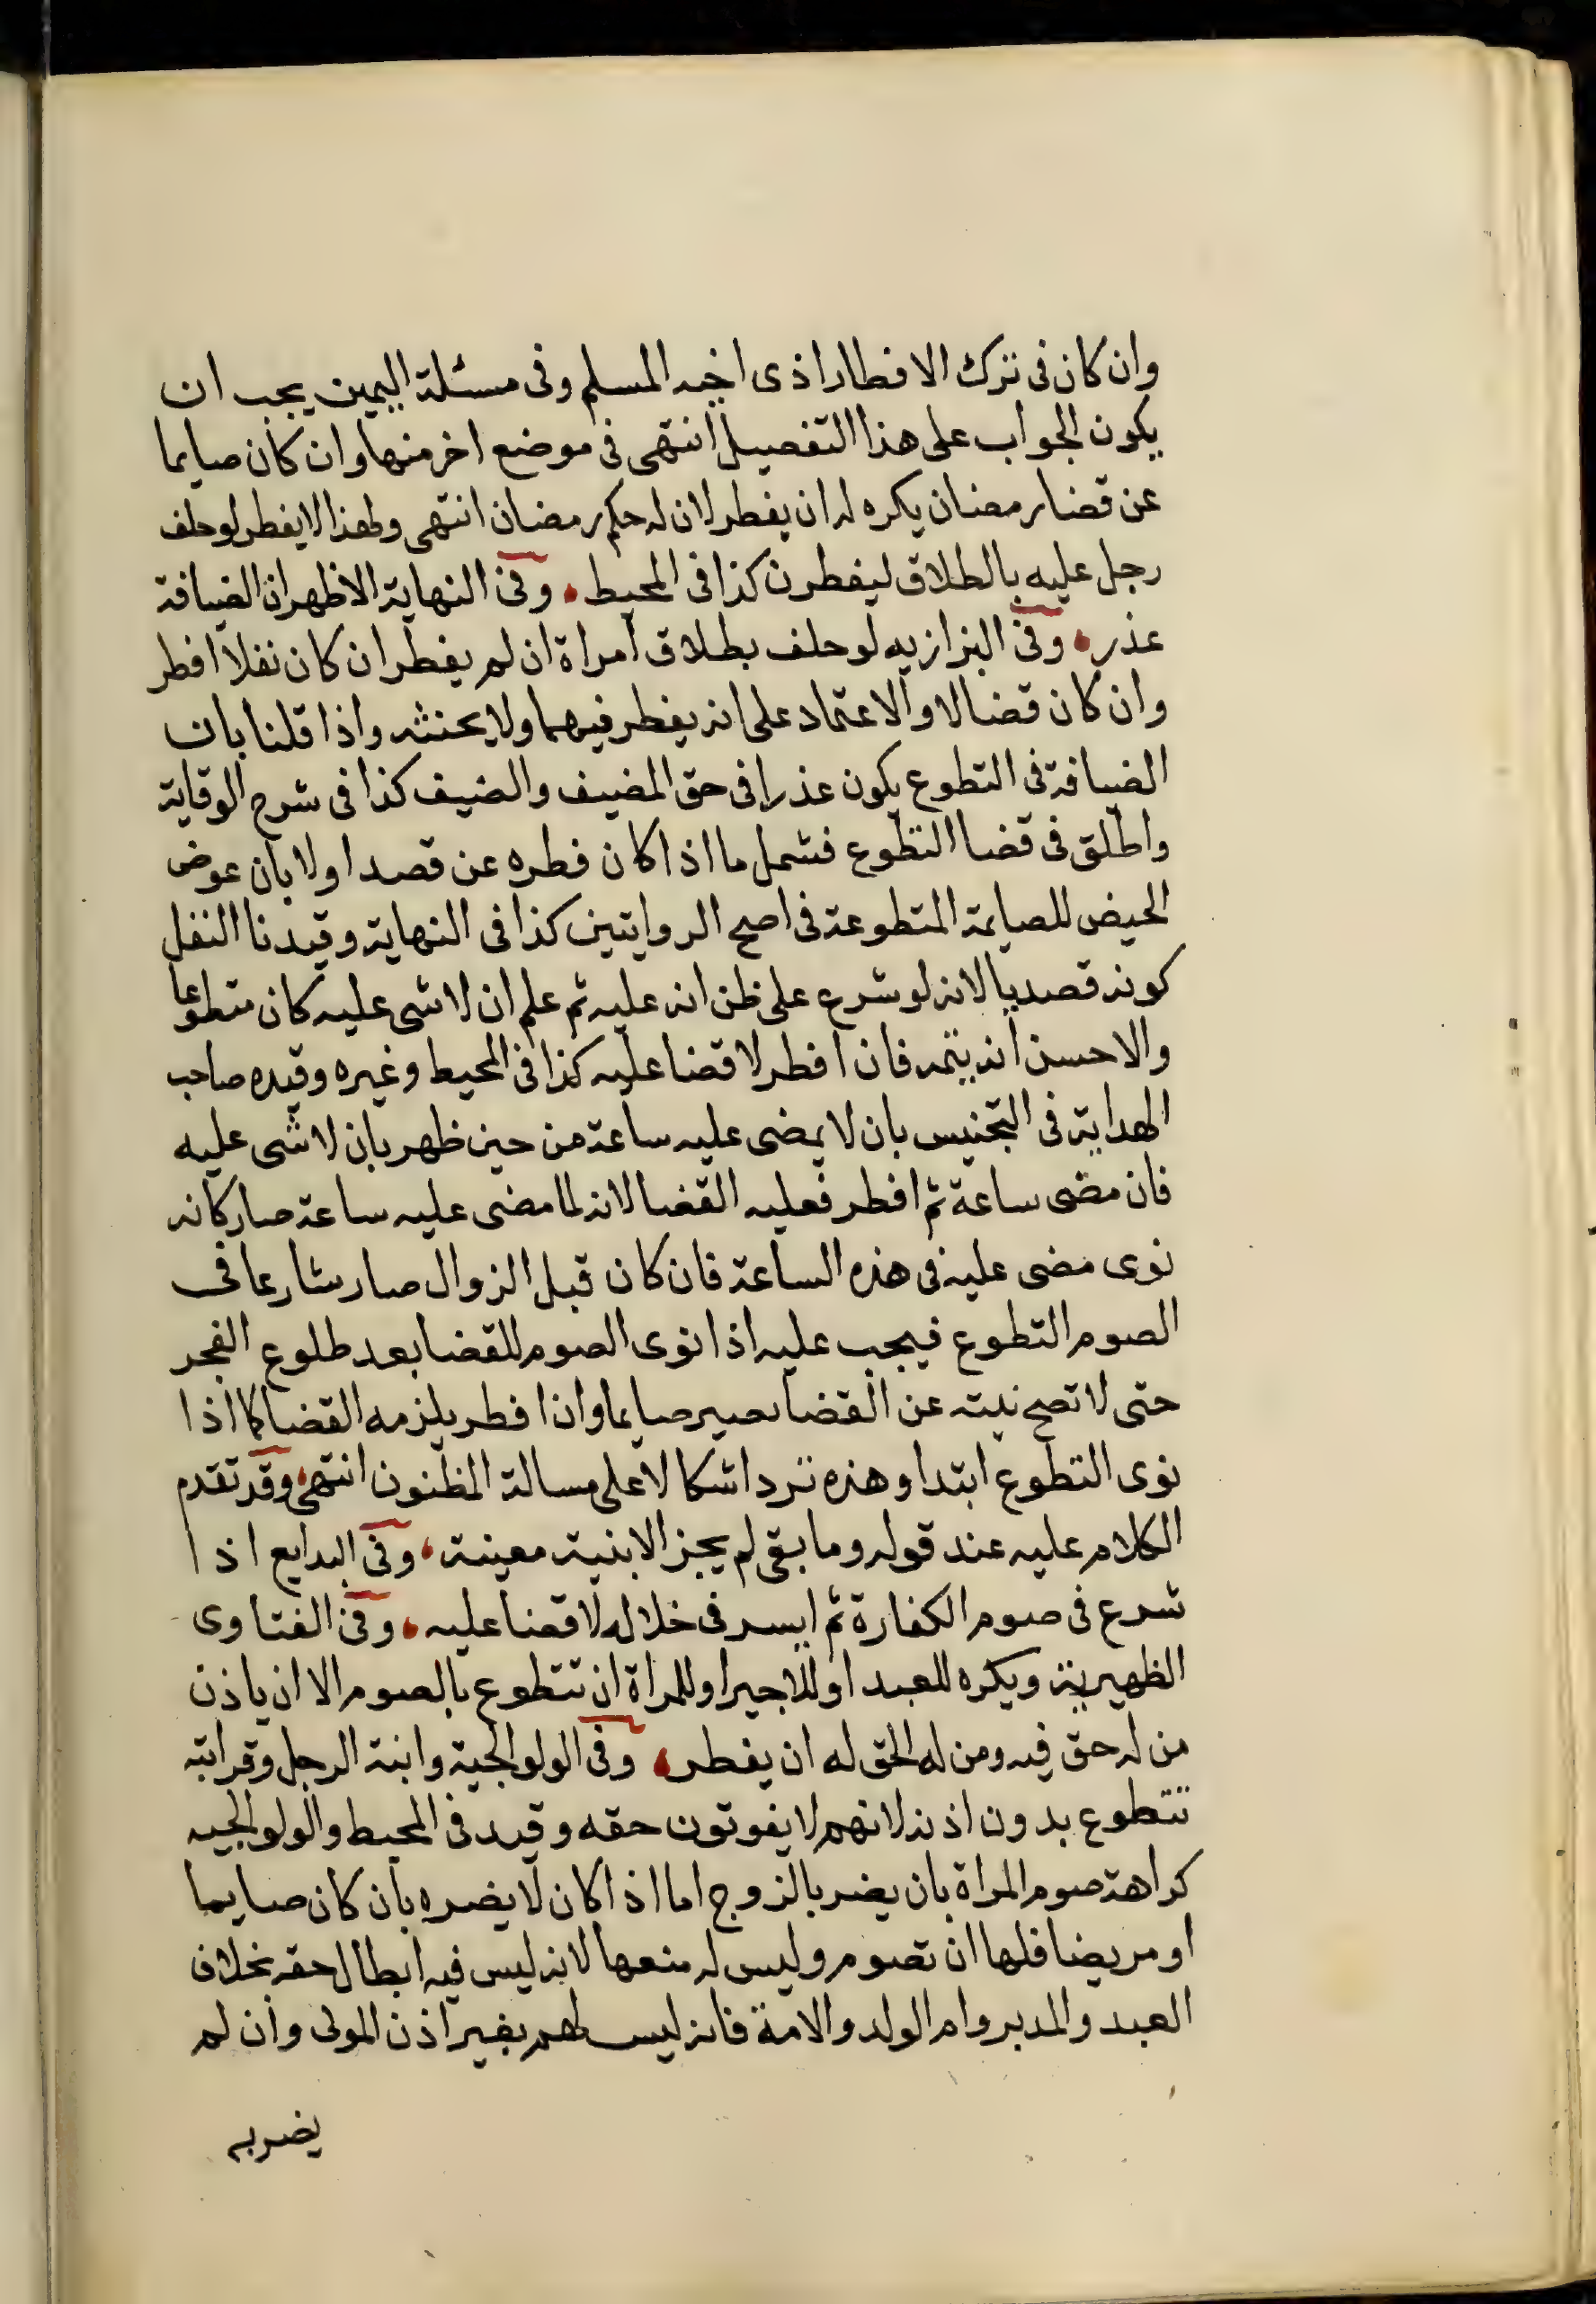 وان كان فى ترك الافطار اذى اخيه المسلم وفى مسئلة اليمين يجب ان
يكون الجواب على هذا التفصيل انتهى فى موضع اخر منها وان كان صايما
عن قضا رمضان يكره له ان يفطر لان له حكم رمضان انتهى ولهذا لا يفطر لو حلف
رجل عليه بالطلاق ليفطرن كذا فى المحيط وفى النهاية الاظهر ان الضيافة
عذر وفى البزازيه لو حلف بطلاق امراة ان لم يفطر ان كان نفلا افطر
وان كان قضا لا والاعتماد على انه يفطر فيهما ولا يحنثه واذا قلنا بان
الضيافة فى التطوع يكون عذرا فى حق المضيف والضيف كذا فى شرح الوقاية
واطلق فى قضا التطوع فشمل ما اذا كان فطره عن قصد او لا بان عرض
الحيض للصايمة المتطوعة فى اصح الروايتين كذا فى النهاية وقيدنا النفل
كونه قصديا لانه لو شرع على ظن انه عليه ثم علم ان لا شى عليه كان متطوعا
والاحسن انه يتمه فان افطر لا قضا عليه كذا فى المحيط وغيره وقيده صاحب
الهداية فى التجنيس بان لا يمضى عليه ساعة من حين ظهر بان لا شى عليه
فان مضى ساعة ثم افطر فعليه القضا لانه لما مضى عليه ساعة صار كانه
نوى مضى عليه فى هذه الساعة فان كان قبل الزوال صار شارعا فى
الصوم التطوع فيجب عليه اذا نوى الصوم للقضا بعد طلوع الفجر
حتى لا تصح نيته عن القضا يصير صايما وان افطر يلزمه القضا كما اذا
نوى التطوع ابتدا وهذه ترد اشكالا على مسالة المظنون انتهى وقد تقدم
الكلام عليه عند قوله وما بقى لم يجز الا بنية معينة وفى البدايع اذا
شرع فى صوم الكفارة ثم ايسر فى خلاله لا قضا عليه وفى الفتاوى
الظهيرية ويكره للعبد او للاجير او للمراة ان تتطوع بالصوم الا ان ياذن
من له حق فيه ومن له الحق له ان يفطر وفى الولوالجية وابنة الرجل وقرابته
تتطوع بدون اذنه لانهم لا يفوتون حقه وقيد فى المحيط والولوالجيه
كراهة صوم المراة بان يضر بالزوج اما اذا كان لا يضره بان كان صايما
او مريضا فلها ان تصوم وليس له منعها لانه ليس فيه ابطال حقه بخلاف
العبد والمدبر وام الولد والامة فانه ليس لهم بغير اذن المولى وان لم
يضر به